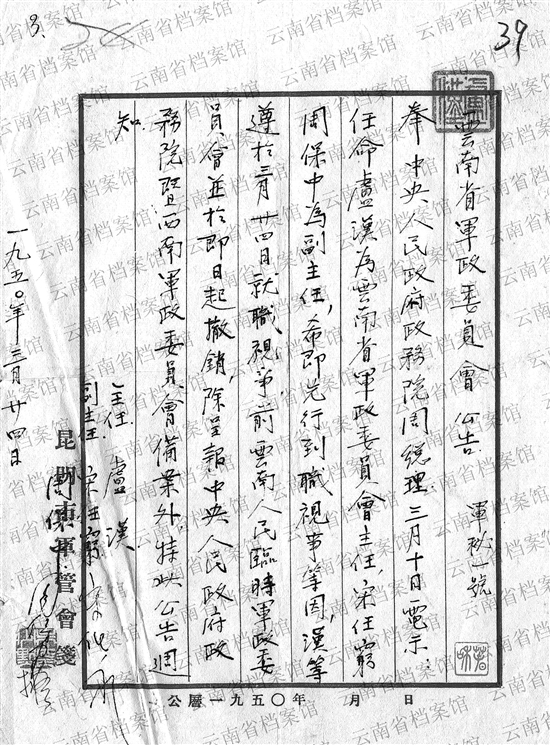 39
3.
雲南省軍政委員會公告 軍秘一號
奉中央人民政府政務院周總理三月十日電示:
任命盧漢為雲南省軍政委員會主任,宋任窮
周保中為副主任,希即先行到職視事等因,漢等
遵於三月廿四日就職視事,前雲南人民臨時軍政委
員會並於即日起撤銷,除呈報中央人民政府政
務院暨西南軍政委員會備案外,特此公告週
知.
主任 盧漢
副主任 宋任窮
周保中
一九五〇年三月廿四日
昆明市軍管會箋
公曆一九五〇年 月 日
云南省档案馆